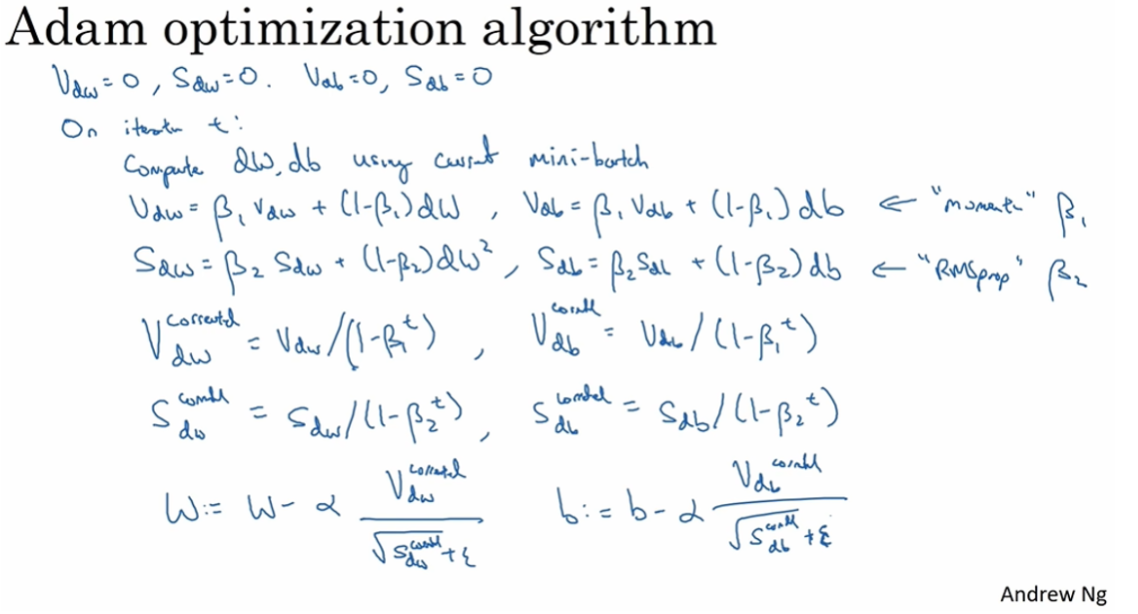 Adam optimization algorithm
V_dw = 0, S_dw = 0. V_db = 0, S_db = 0
On iteration t:
Compute dW, db using current mini-batch
V_dw = β₁ V_dw + (1-β₁) dW , V_db = β₁ V_db + (1-β₁) db ← "moment" β₁
S_dw = β₂ S_dw + (1-β₂) dW² , S_db = β₂ S_db + (1-β₂) db ← "RMSprop" β₂
V_dw^corrected = V_dw/(1-β₁^t) , V_db^corrected = V_db/(1-β₁^t)
S_dw^corrected = S_dw/(1-β₂^t) , S_db^corrected = S_db/(1-β₂^t)
W := W - α V_dw^corrected / (√S_dw^corrected + ε) b := b - α V_db^corrected / (√S_db^corrected + ε)
Andrew Ng